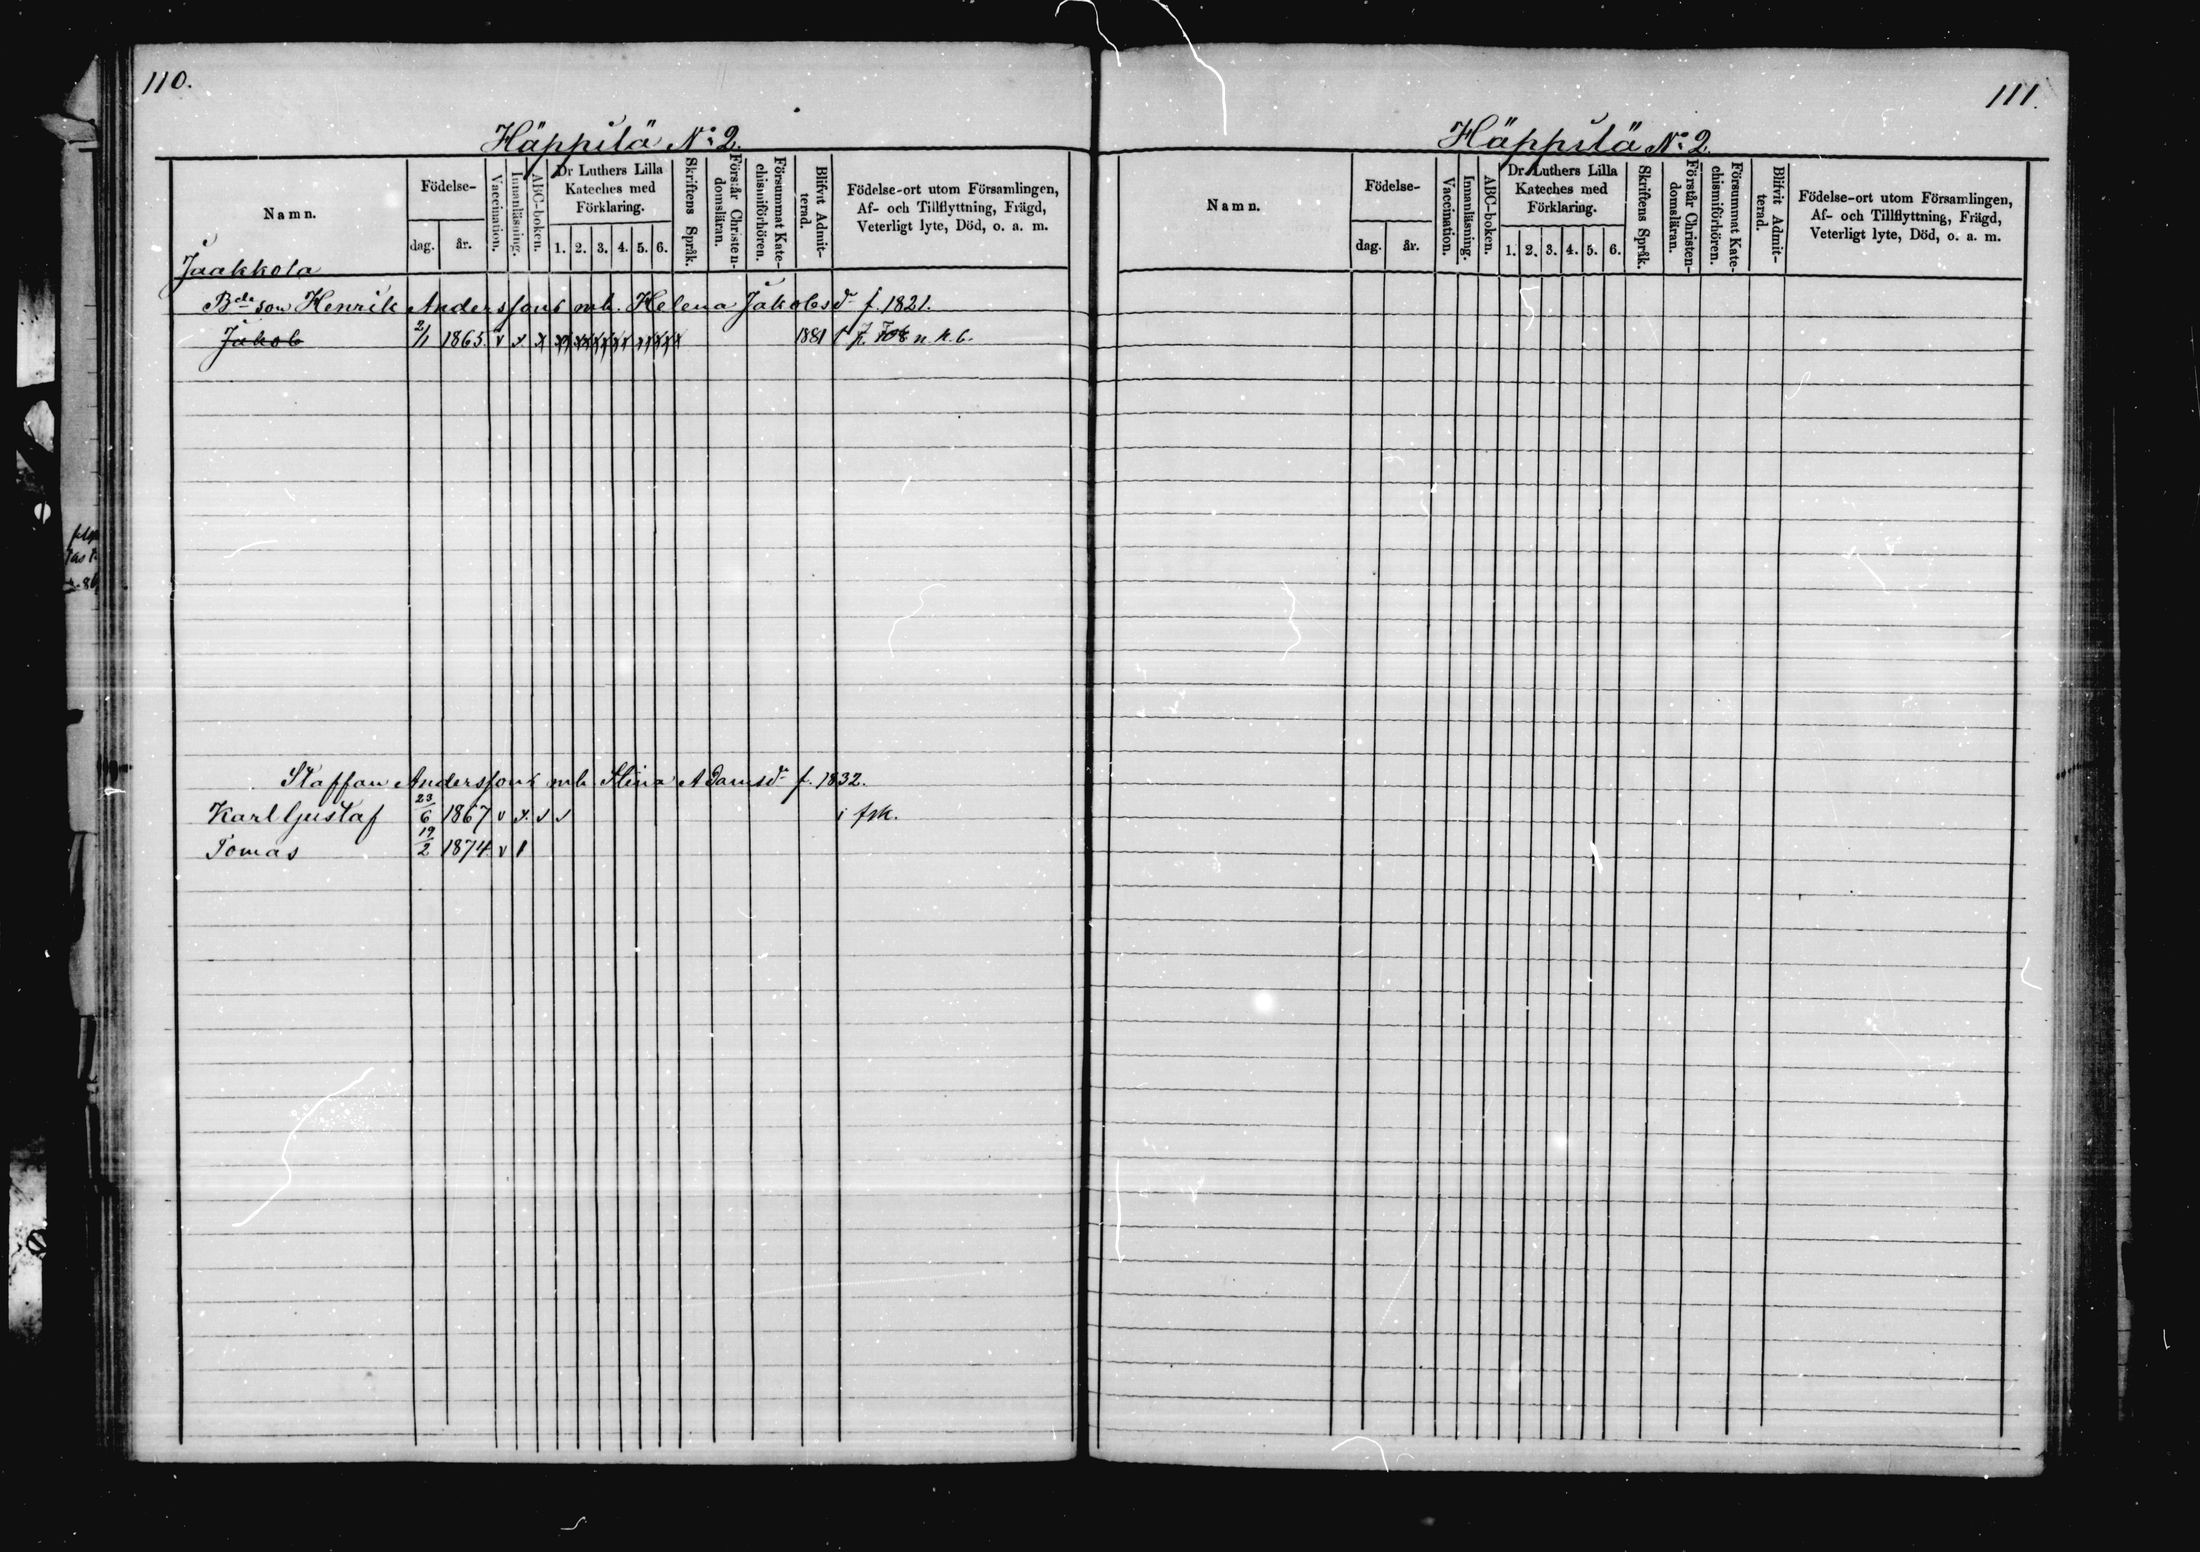 110.
Häppilä No 2.
Namn.
Födelse-
dag.
år.
Vaccination.
Innanläsning.
ABC-boken.
Dr Luthers Lilla
Kateches med
Förklaring.
1. 2. 3. 4. 5. 6.
Skriftens Språk.
Förstår Christen-
domsläran.
Försummat Kate-
chismiförhören.
Blifvit Admit-
terad.
Födelse-ort utom Församlingen,
Af- och Tillflyttning, Frägd,
Veterligt lyte, Död, o. a. m.
Jaakkola
Bde son Henrik Anderssons mb. Helena Jakobsdr f. 1821.
Jakob 2/1 1865. v x x 1881 n. k. b.
Staffan Anderssons mb Stina Adamsdr f. 1832.
Karl Gustaf 23/6 1867 v x. v v i fsk.
Tomas 19/2 1874 v 1
111.
Häppilä No 2.
Namn.
Födelse-
dag.
år.
Vaccination.
Innanläsning.
ABC-boken.
Dr Luthers Lilla
Kateches med
Förklaring.
1. 2. 3. 4. 5. 6.
Skriftens Språk.
Förstår Christen-
domsläran.
Försummat Kate-
chismiförhören.
Blifvit Admit-
terad.
Födelse-ort utom Församlingen,
Af- och Tillflyttning, Frägd,
Veterligt lyte, Död, o. a. m.